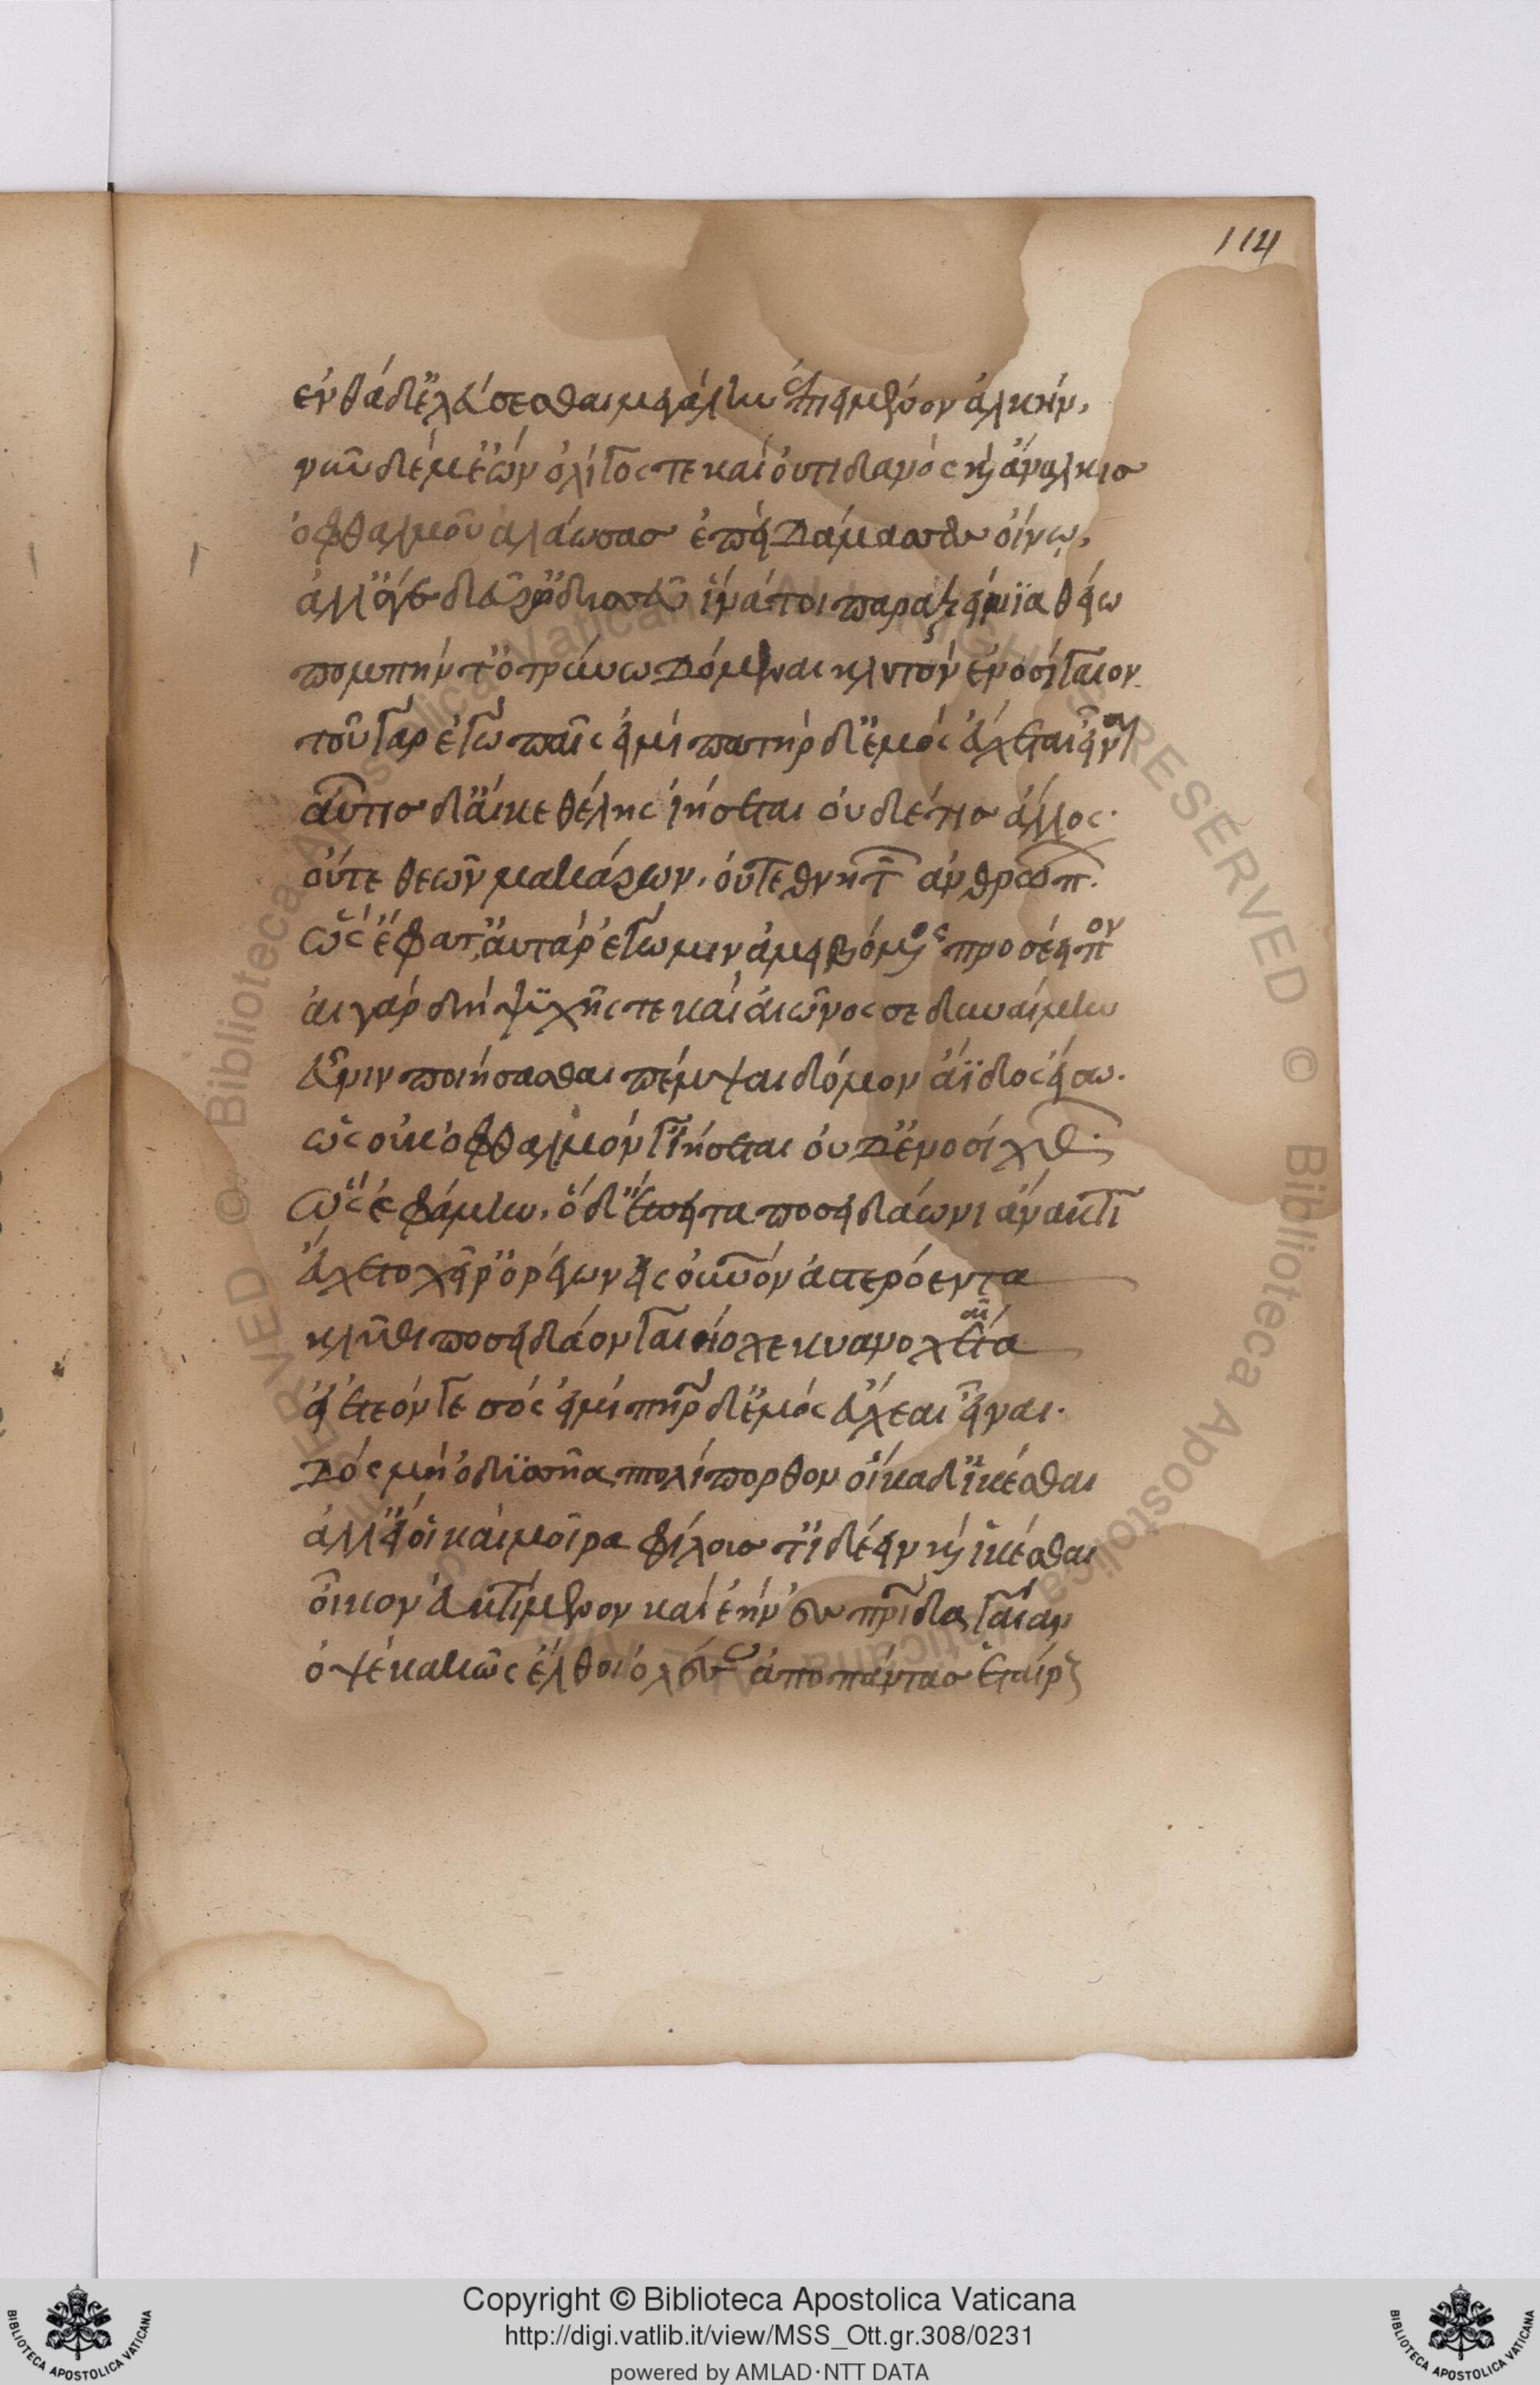 114
ἐνθάδ' ἐλεύσεσθαι μεγάλην ἐπιειμένον ἀλκήν,
νῦν δέ μ' ἐὼν ὀλίγος τε καὶ οὐτιδανὸς καὶ ἄναλκις
ὀφθαλμοῦ ἀλάωσας ἐπεὶ δάμασσεν οἴνω,
ἀλλ' ἄγε δεῦρ' ὀδυσεῦ ἵνά τοι παραὶ ξείνϊα θείω
πομπήν τ' ὀτρύνω δόμεναι κλυτὸν ἐνοσίγαιον
τοῦ γὰρ ἐγὼ παῖς εἰμὶ πατὴρ δ' ἐμὸς εὔχεται εἶναι
αὐτὸς δ' αἴκε θέλης ἰήσεται οὐδέ τις ἄλλος·
οὔτε θεῶν μακάρων, οὔτε θνητ ἀνθρώπ.
ὣς ἔφατ', αὐτὰρ ἐγώ μιν ἀμειβόμενος προσέειπον
αἲ γὰρ δὴ ψϋχῆς τε καὶ αἰῶνος σε δυναίμην
εὖνιν ποιήσασθαι πέμψαι δόμον ἄϊδος εἴσω.
ὡς οὐκ ὀφθαλμόν γ' ἰήσεται οὐδ' ἐνοσίχθ.
ὣς ἐφάμην, ὁ δ' ἔπειτα ποσειδάωνι ἄνακτι
εὔχετο χεῖρ' ὀρέγων εἰς οὐρανὸν ἀστερόεντα
κλῦθι ποσείδαον γαιήοχε κυανοχαῖτα
εἰ ἐτεόν γε σός εἰμὶ πηρ δ' ἐμὸς εὔχεαι εἶναι.
δὸς μὴ ὀδϋσσῆα πτολίπορθον οἴκαδ' ἱκέσθαι
ἀλλ' εἴ οἱ καὶ μοῖρα φίλους τ' ἰδέειν καὶ ἱκέσθαι
οἶκον ἐυκτίμενον καὶ ἑὴν ἐς πρίδα γαῖαν
ὀψὲ κακῶς ἔλθοι ὀλέσας ἄπο πάντας ἑταίρους
Copyright © Biblioteca Apostolica Vaticana
http://digi.vatlib.it/view/MSS_Ott.gr.308/0231
powered by AMLAD·NTT DATA